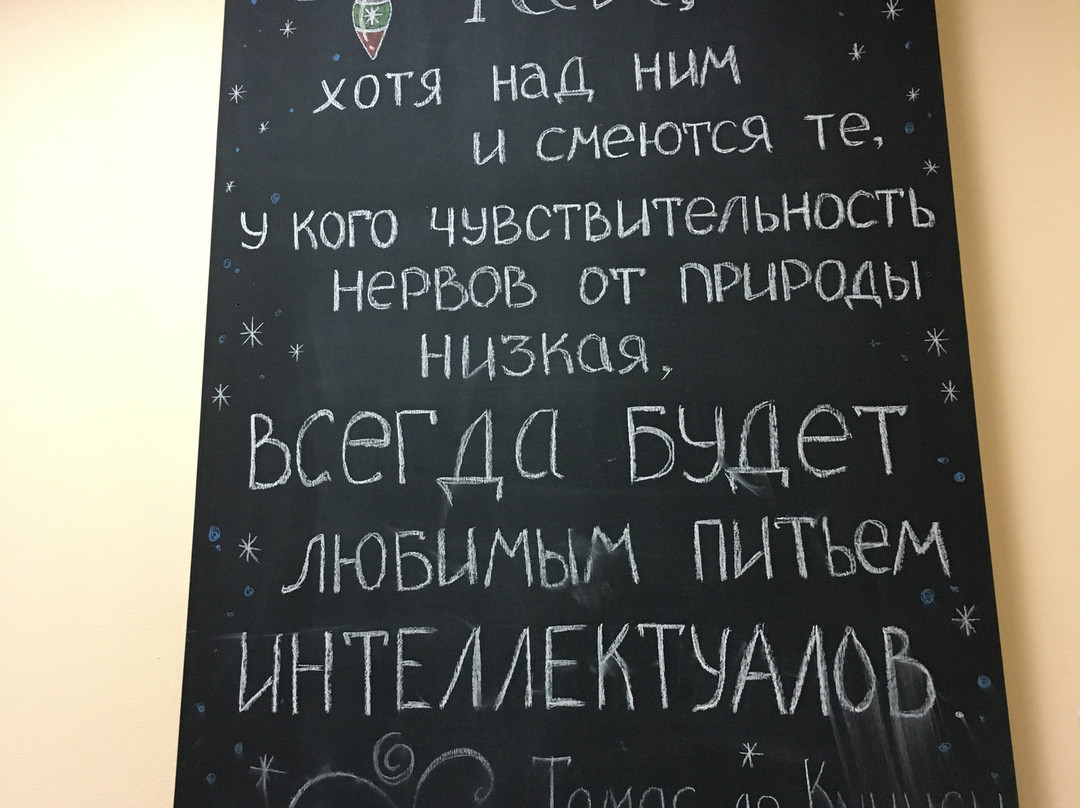 хотя над ним
и смеются те,
у кого чувствительность
нервов от природы
низкая,
всегда будет
любимым питьем
ИНТЕЛЛЕКТУАЛОВ
Томас де